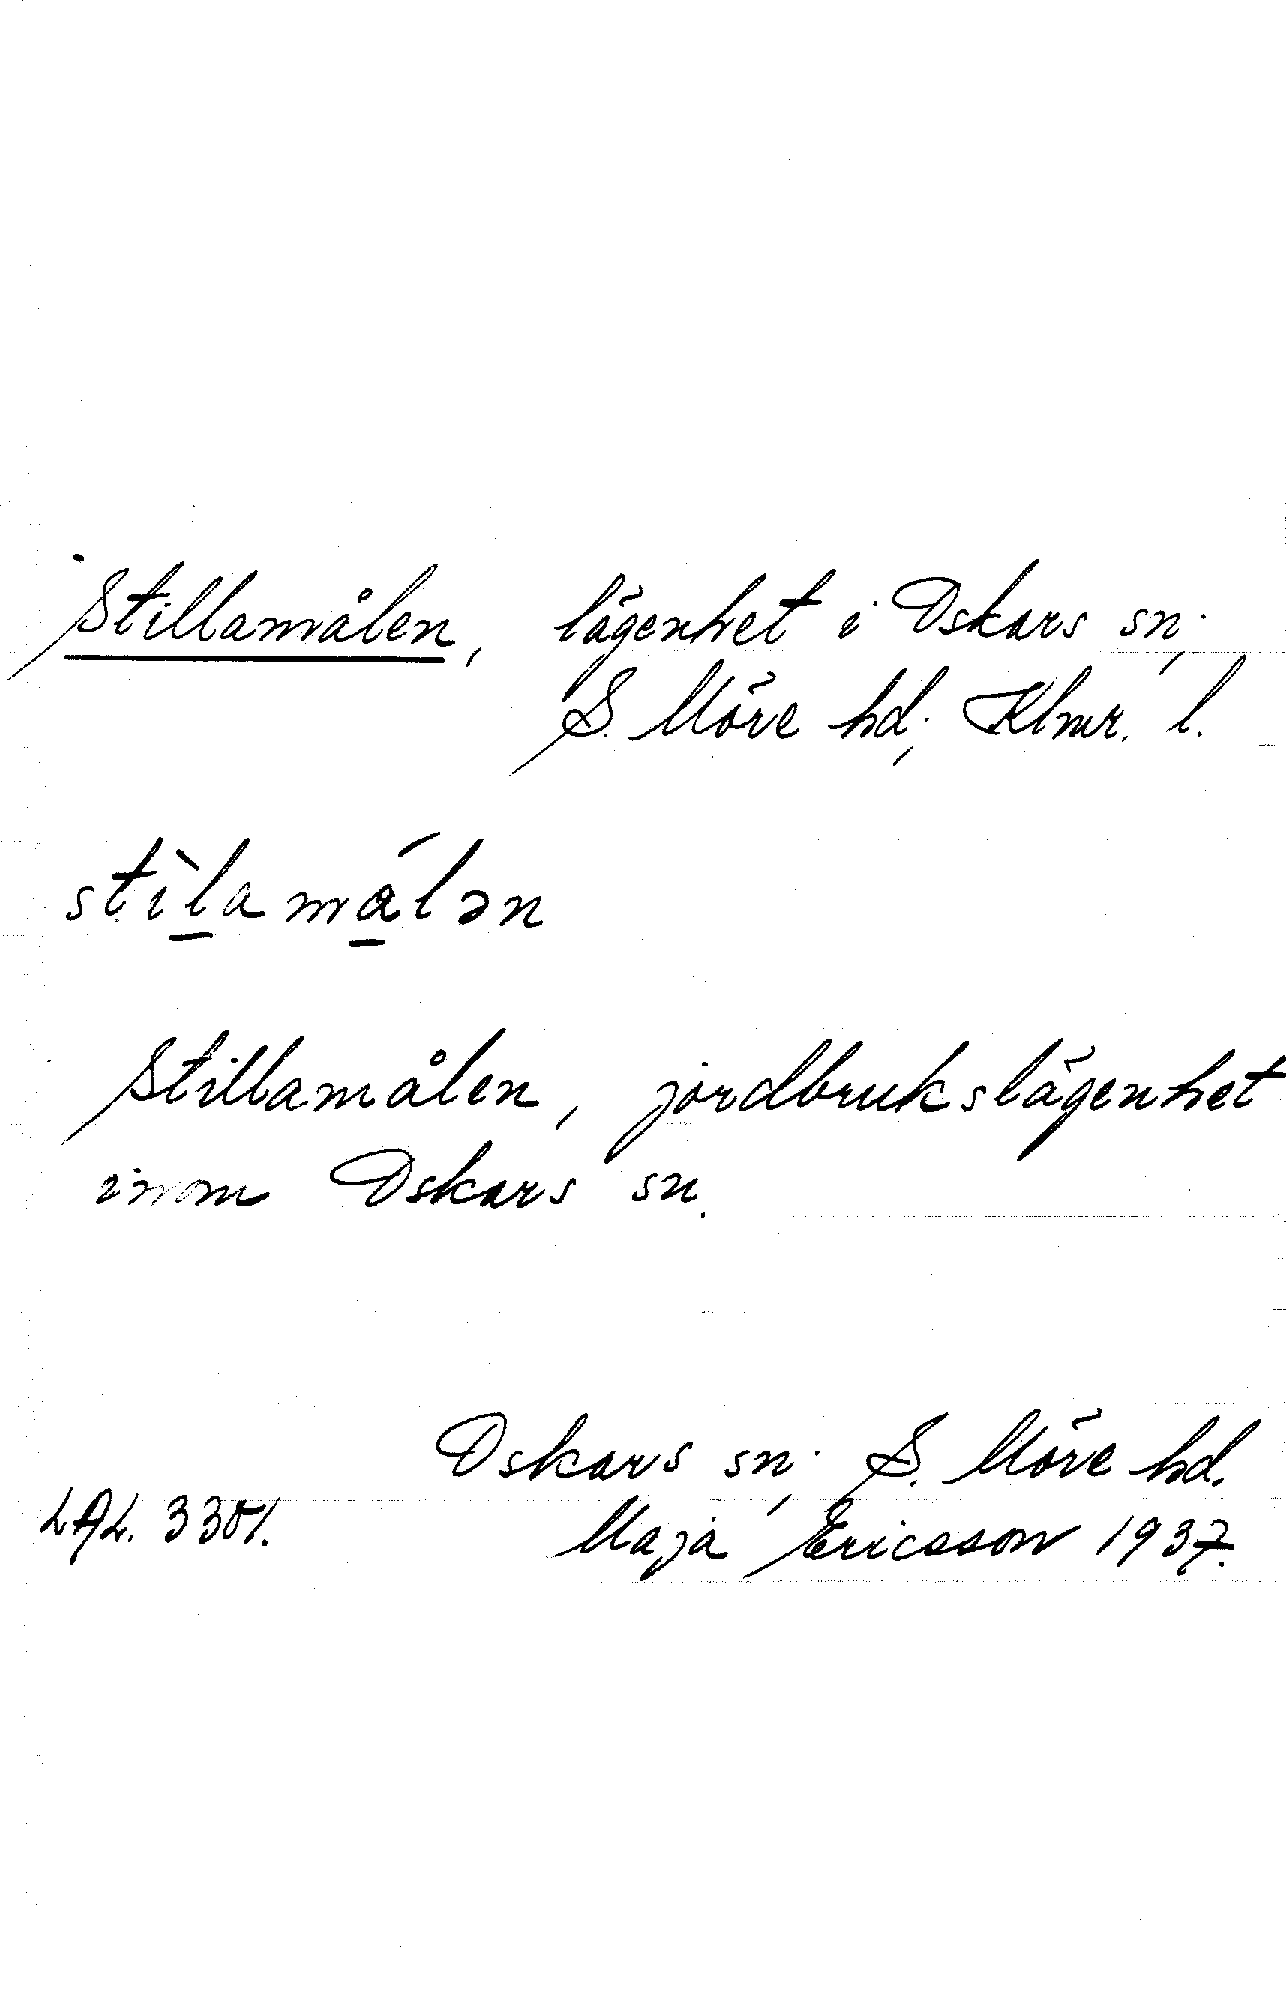 Stillamålen, lägenhet i Oskars sn;
S. Möre hd; Klmr. l.
stìl̲amá̲lən
Stillamålen, jordbrukslägenhet
inom Oskars sn.
Oskars sn; S. Möre hd.
LAL. 3301. Maja Ericsson 1937.